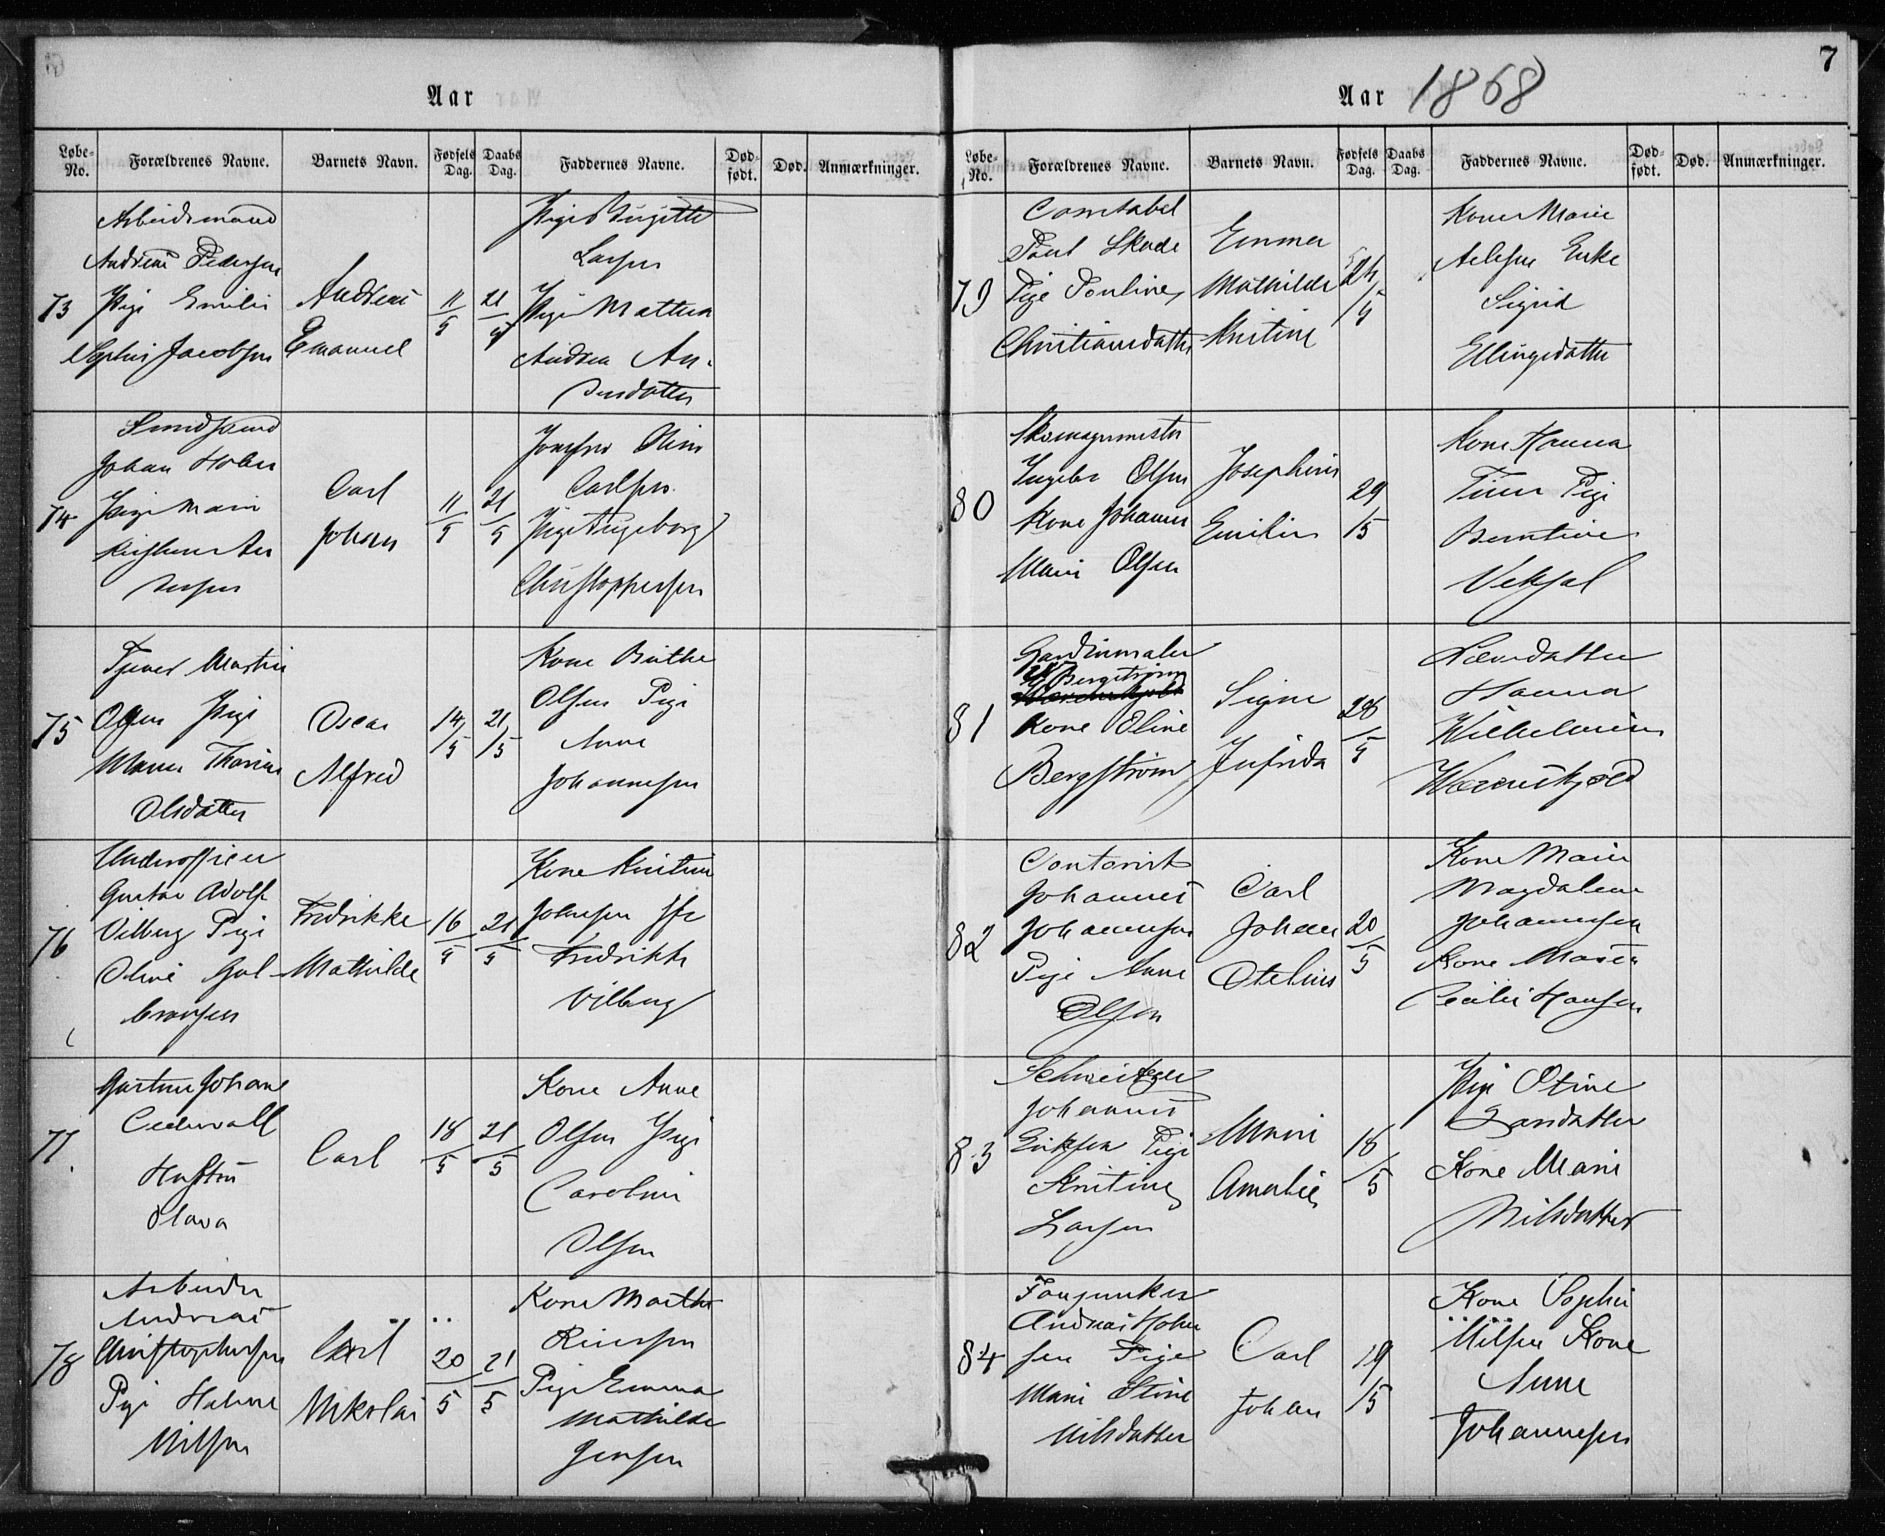 Aar
Løbe-No. Forældrenes Navne. Barnets Navn. Fødsels Dag. Daabs Dag. Faddernes Navne. Død-født. Død. Anmærkninger.
73
Arbeidsmand
Andreas Pedersen
Pige Emilie
Sophie Jacobsen
Andreas
Emanuel
11/5
21/5
Pige Birgitte
Larsen
Pige Mathea
Andrea An-
dersdatter
74
Smedsvend
Johan Holm
Pige Marie
Johan
Carl
11/5
21/5
Jomfru Oline
Carlsen
Pige Ingeborg
Christophersen
75
Tjener Martin
Olsen Pige
Maren Thorine
Olsdatter
Oscar
Alfred
14/5
21/5
Kone Birthe
Olsen Pige
Anne
Johannesen
76
Underofficer
Gustav Adolf
Vilberg Pige
Oline Gul-
bransen
Fredrikke
Mathilde
16/5
21/5
Kone Kristine
Johnsen
Fredrikke
Vilberg
77
Gartner Johan
Cedervall
Hustru
Olava
Carl
18/5
21/5
Kone Anne
Olsen Pige
Caroline
Olsen
78
Arbeider
Andreas
Christophersen
Pige Helene
Nilsen
Carl
Nikolai
20/5
21/5
Kone Marthe
Pige Emma
Mathilde
Jensen
7
Aar 1868
Løbe-No. Forældrenes Navne. Barnets Navn. Fødsels Dag. Daabs Dag. Faddernes Navne. Død-født. Død. Anmærkninger.
79
Constabel
Poul Skade
Pige Pouline
Christiansdatter
Emma
Mathilde
Kristine
Kone Marie
Enke
Sigrid
Ellingsdatter
80
Skomagermester
Olsen
Kone Johanne
Marie Olsen
Josephine
Emilie
29/5
Kone Hanna
Pige
Berntine
81
Gardinmaler
Bergstrøm
Kone Eline
Bergstrøm
Signe
28/5
Hanna
Wilhelmine
Wærenskjold
82
Contorist
Johannes
Johannesen
Pige Anne
Olsen
Carl
Johan
Otelius
20/5
Kone Marie
Magdalene
Johannesen
Kone Maren
Cecilie Hansen
83
Schweitzer
Johannes
Eriksen Pige
Kristine
Larsen
Marie
Amalie
18/5
Pige Stine
Larsdatter
Kone Marie
Nilsdatter
84
Fanejunker
Andreas Holm
sen Pige
Marie Stine
Nilsdatter
Carl
Johan
19/5
Kone Sophie
Nilsen Kone
Anne
Johannesen